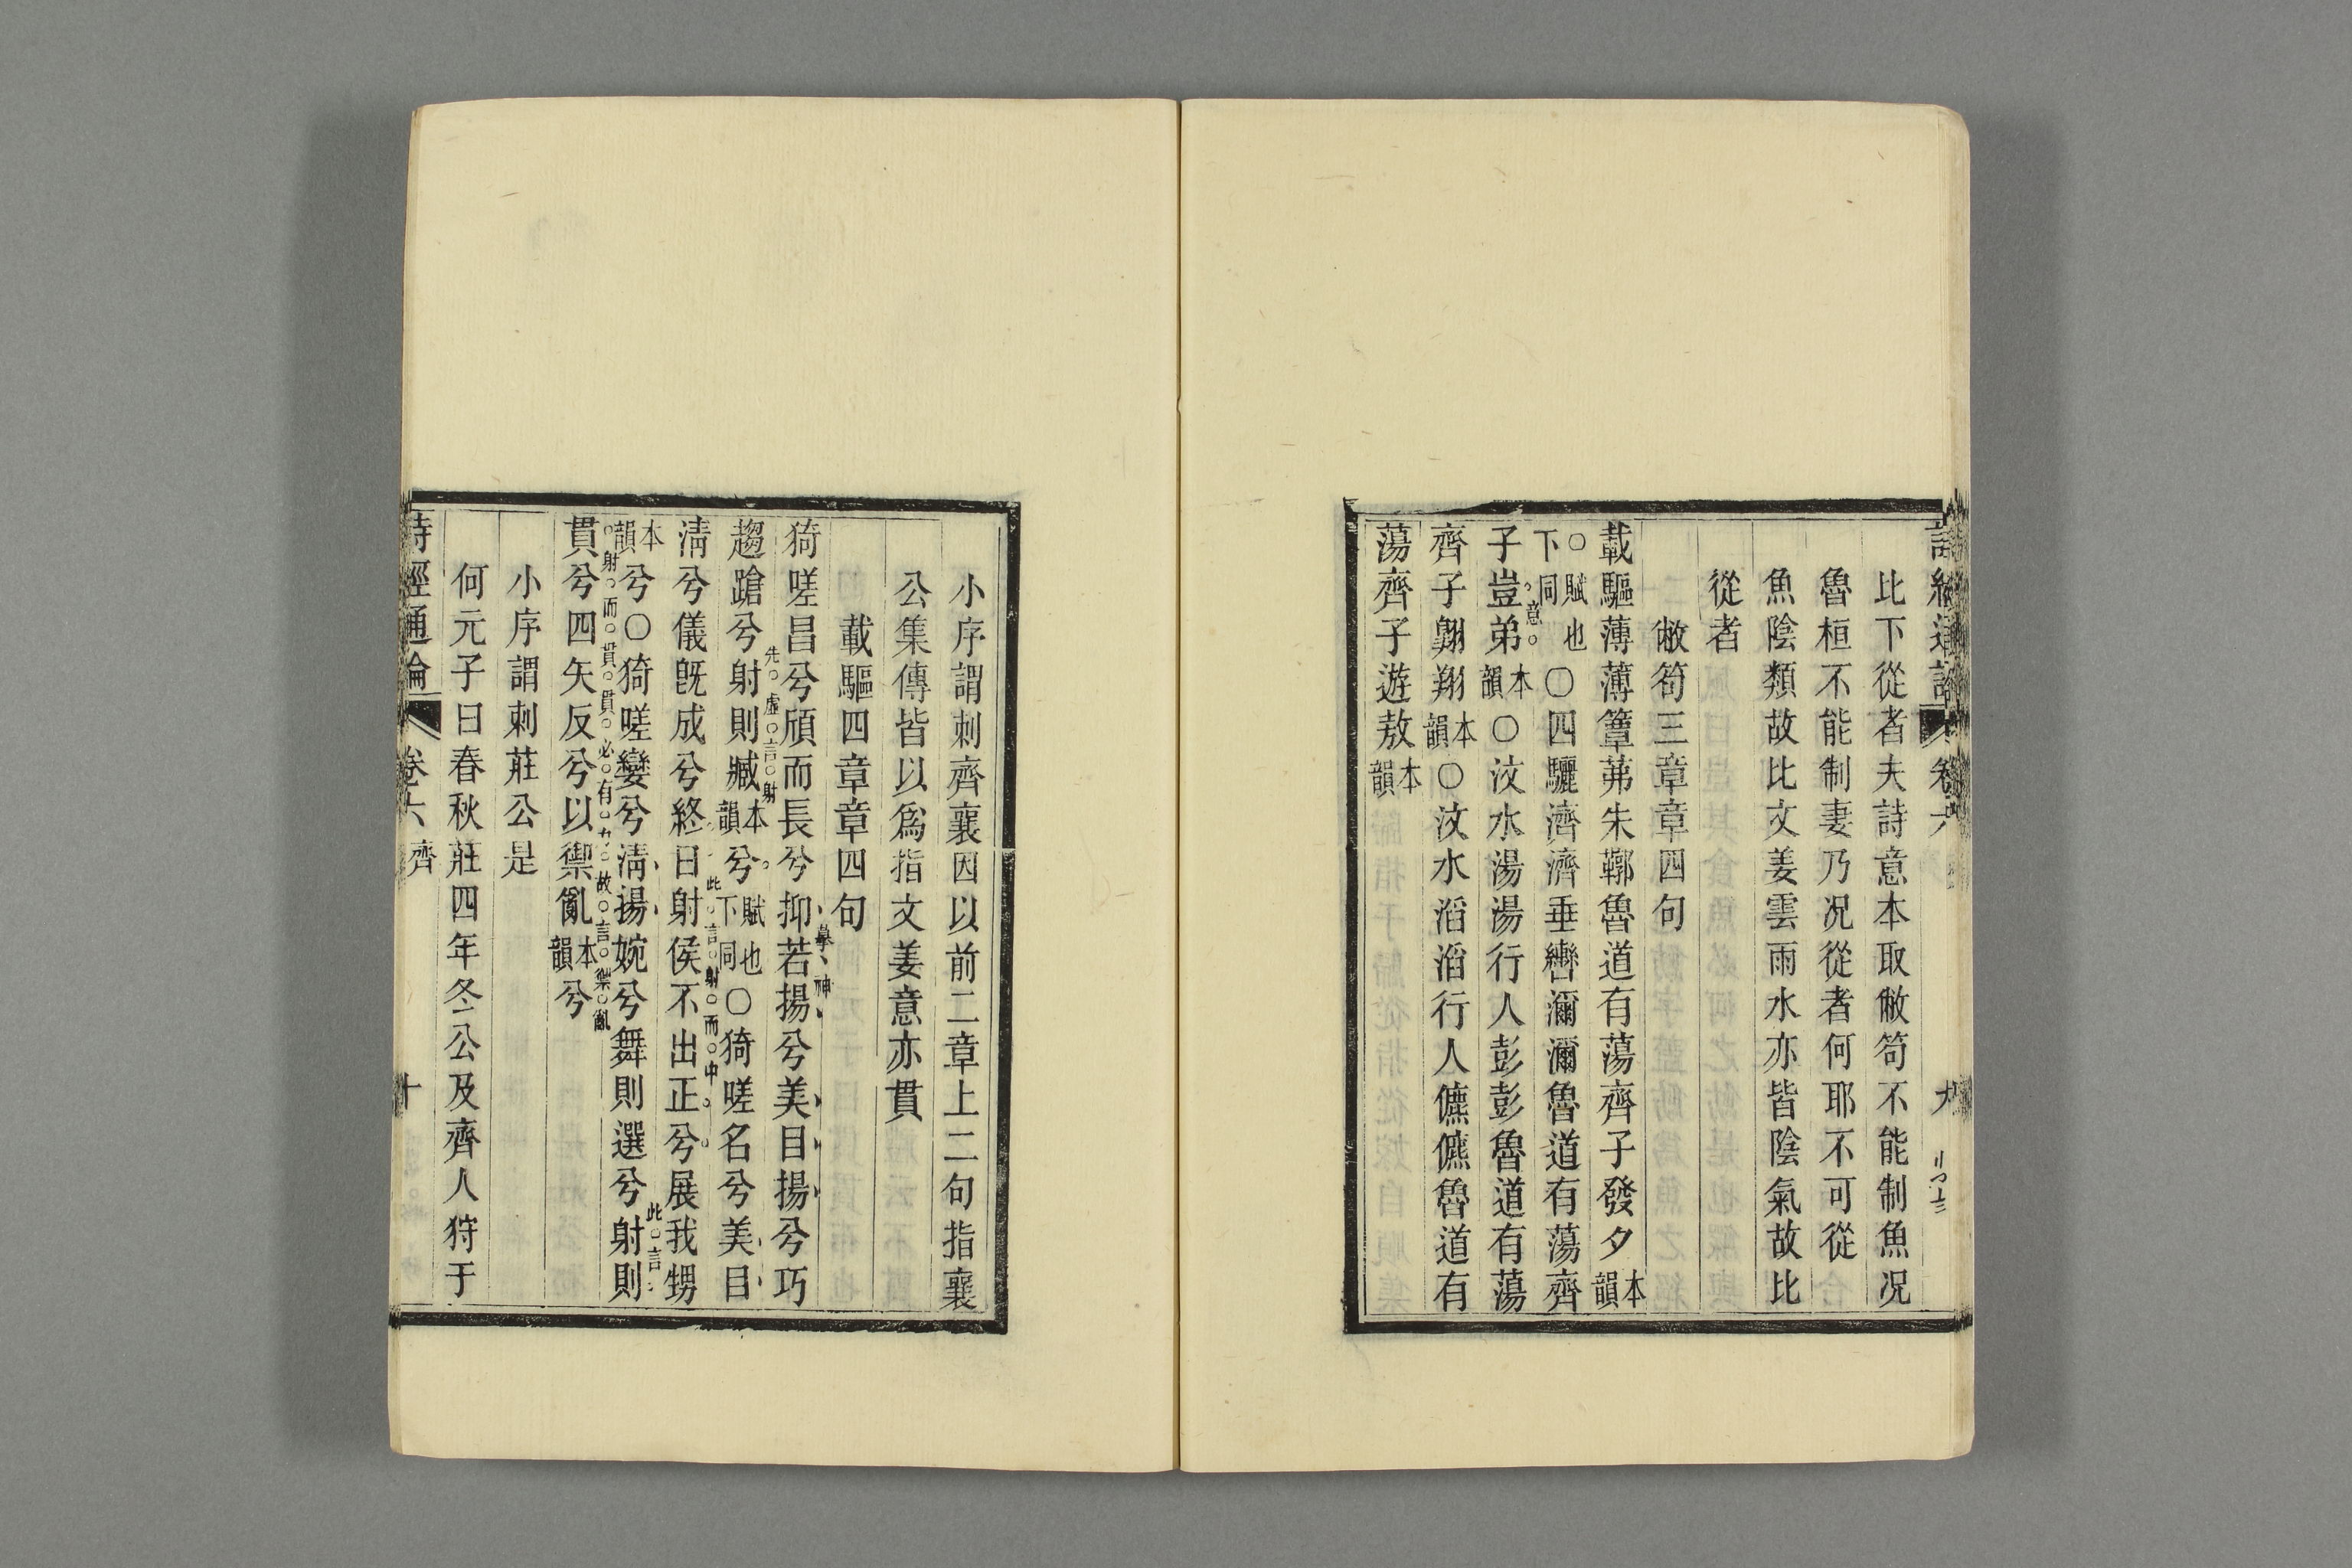 比下從者夫詩意本取敝笱不能制魚况
魯桓不能制妻乃况從者何耶不可從
魚陰類故比文姜雲雨水亦皆陰氣故比
從者
敝笱三章章四句
載驅薄薄簟茀朱鞹魯道有蕩齊子發夕本韻
○賦也下同○四驪濟濟垂轡瀰瀰魯道有蕩齊
子豈弟本韻○汶水湯湯行人彭彭魯道有蕩
意
齊子翱翔本韻○汶水滔滔行人儦儦魯道有
蕩齊子遊敖本韻
小序謂刺齊襄因以前二章上二句指襄
公集傳皆以爲指文姜意亦貫
載驅四章章四句
猗嗟昌兮頎而長兮抑若揚兮美目揚兮巧
摹神
趨蹌兮射則臧本韻兮賦也下同○猗嗟名兮美目
先虛言射
清兮儀旣成兮終日射侯不出正兮展我甥
此言射而中
本韻兮○猗嗟孌兮清揚婉兮舞則選兮射則
此言
貫兮四矢反兮以禦亂本韻兮
射而貫貫必有力故言禦亂
小序謂刺莊公是
何元子曰春秋莊四年冬公及齊人狩于
詩經通論 卷六 齊 十